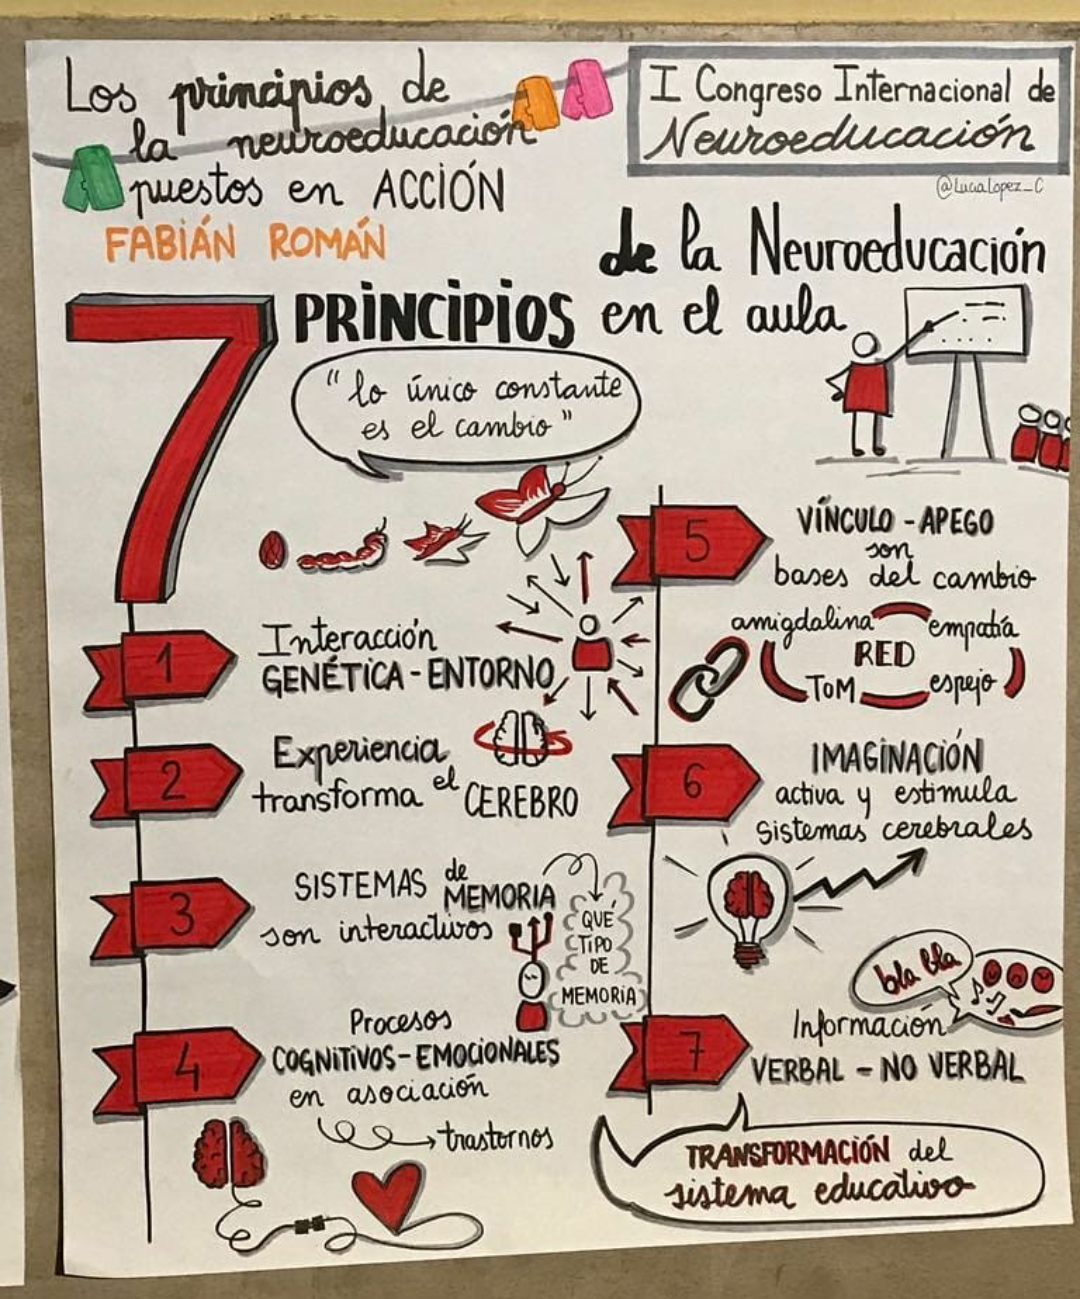 Los principios de
la neuroeducación
puestos en ACCIÓN
FABIÁN ROMÁN
I Congreso Internacional de
Neuroeducación
@LuciaLopez_C
7 PRINCIPIOS
de la Neuroeducación
en el aula
"lo único constante
es el cambio"
1
Interacción
GENÉTICA - ENTORNO
2
Experiencia
transforma el CEREBRO
3
SISTEMAS de MEMORIA
son interactivos
QUÉ
TIPO
DE
MEMORIA
4
Procesos
COGNITIVOS - EMOCIONALES
en asociación
trastornos
5
VÍNCULO - APEGO
son
bases del cambio
amigdalina empatía
RED
ToM espejo
6
IMAGINACIÓN
activa y estimula
sistemas cerebrales
bla bla
7
Información
VERBAL - NO VERBAL
TRANSFORMACIÓN del
sistema educativo